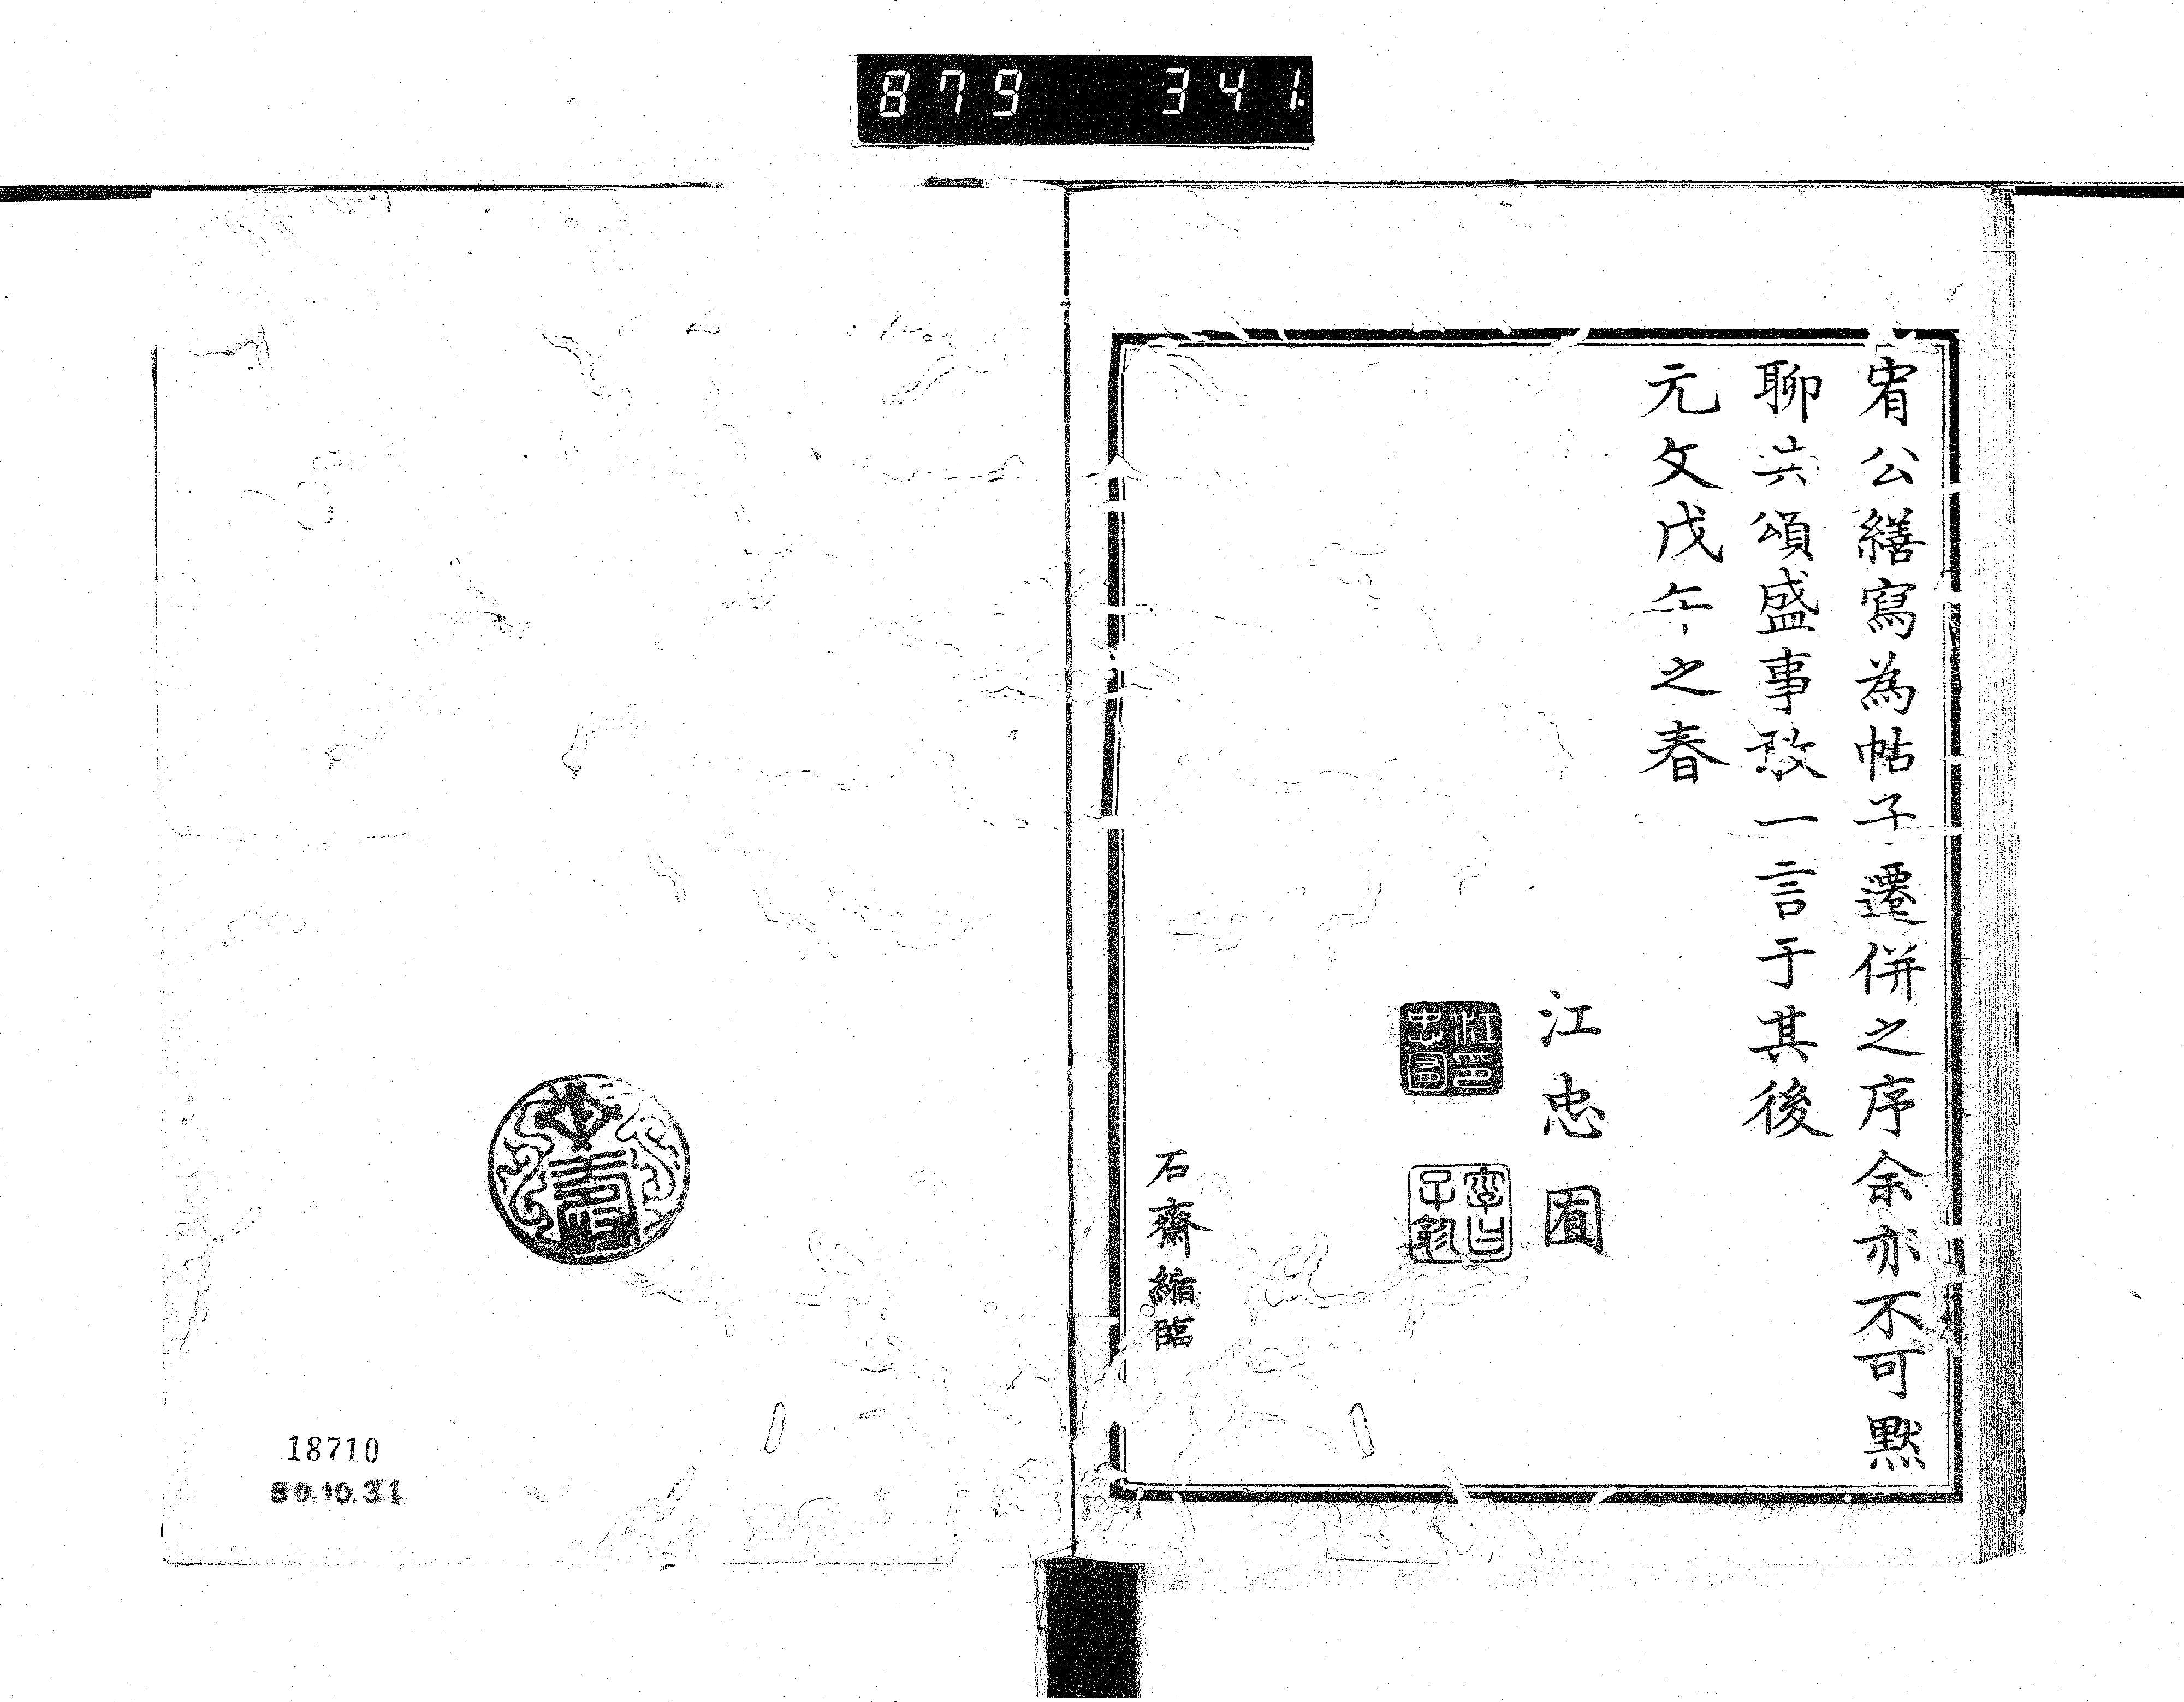 879 341.
宥公繕寫為帖子遷併之序余亦不可默
聊共頌盛事敢一言于其後
元文戊午之春
江忠囿
江忠囿印
字曰子敘
石齋縮臨
18710
50.10.31